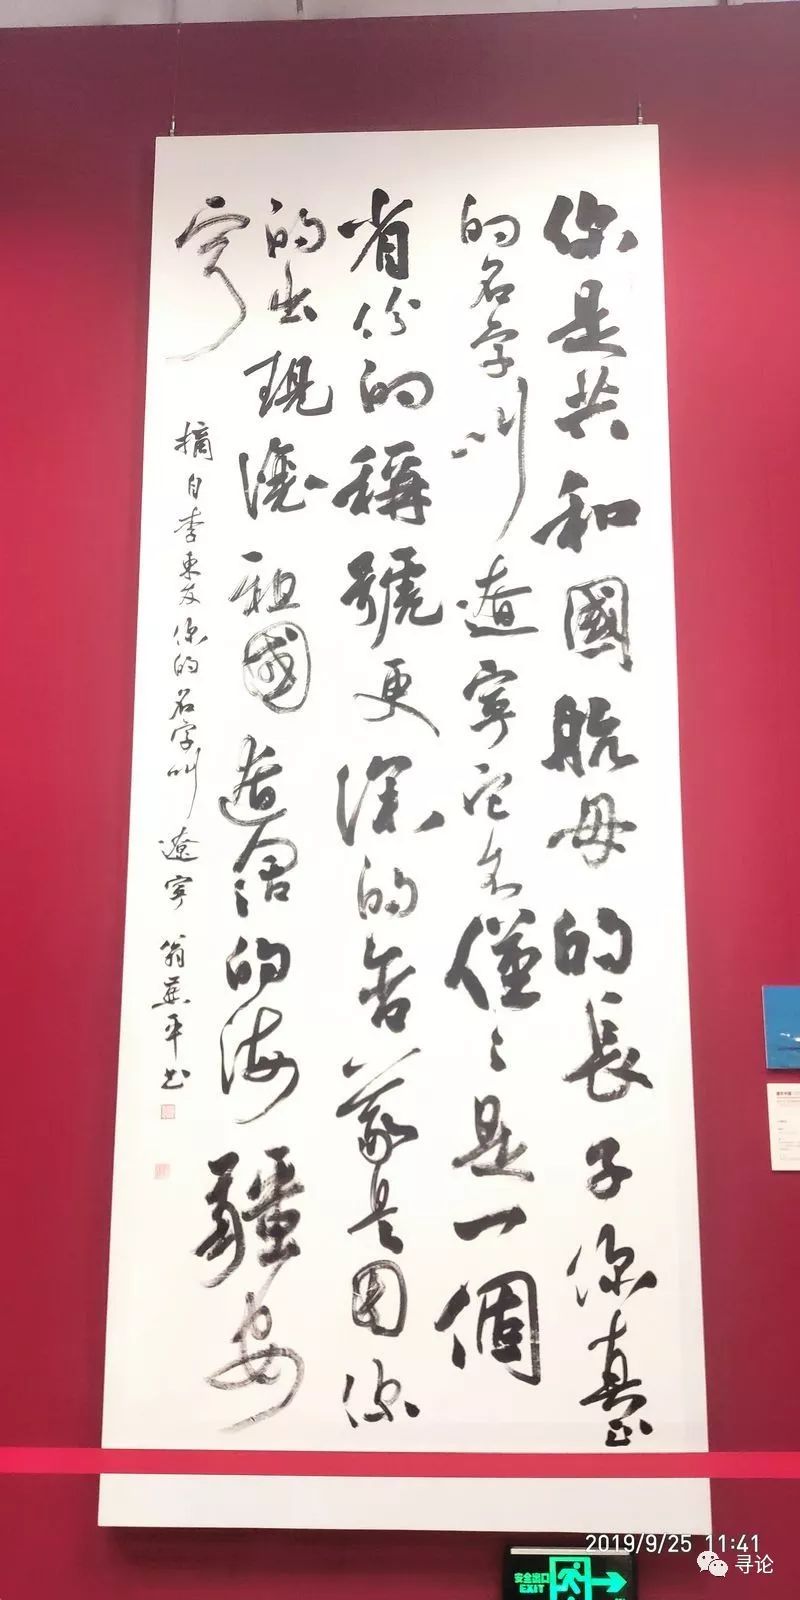 你是共和國航母的長子你真正
的名字叫遼寧它不僅々是一個
省份的稱號更深的含義是因你
的出現讓祖國遼闊的海疆安
寧
摘自李東友你的名字叫遼寧 翁平书
2019/9/25 11:41
寻论
安全出口
EXIT